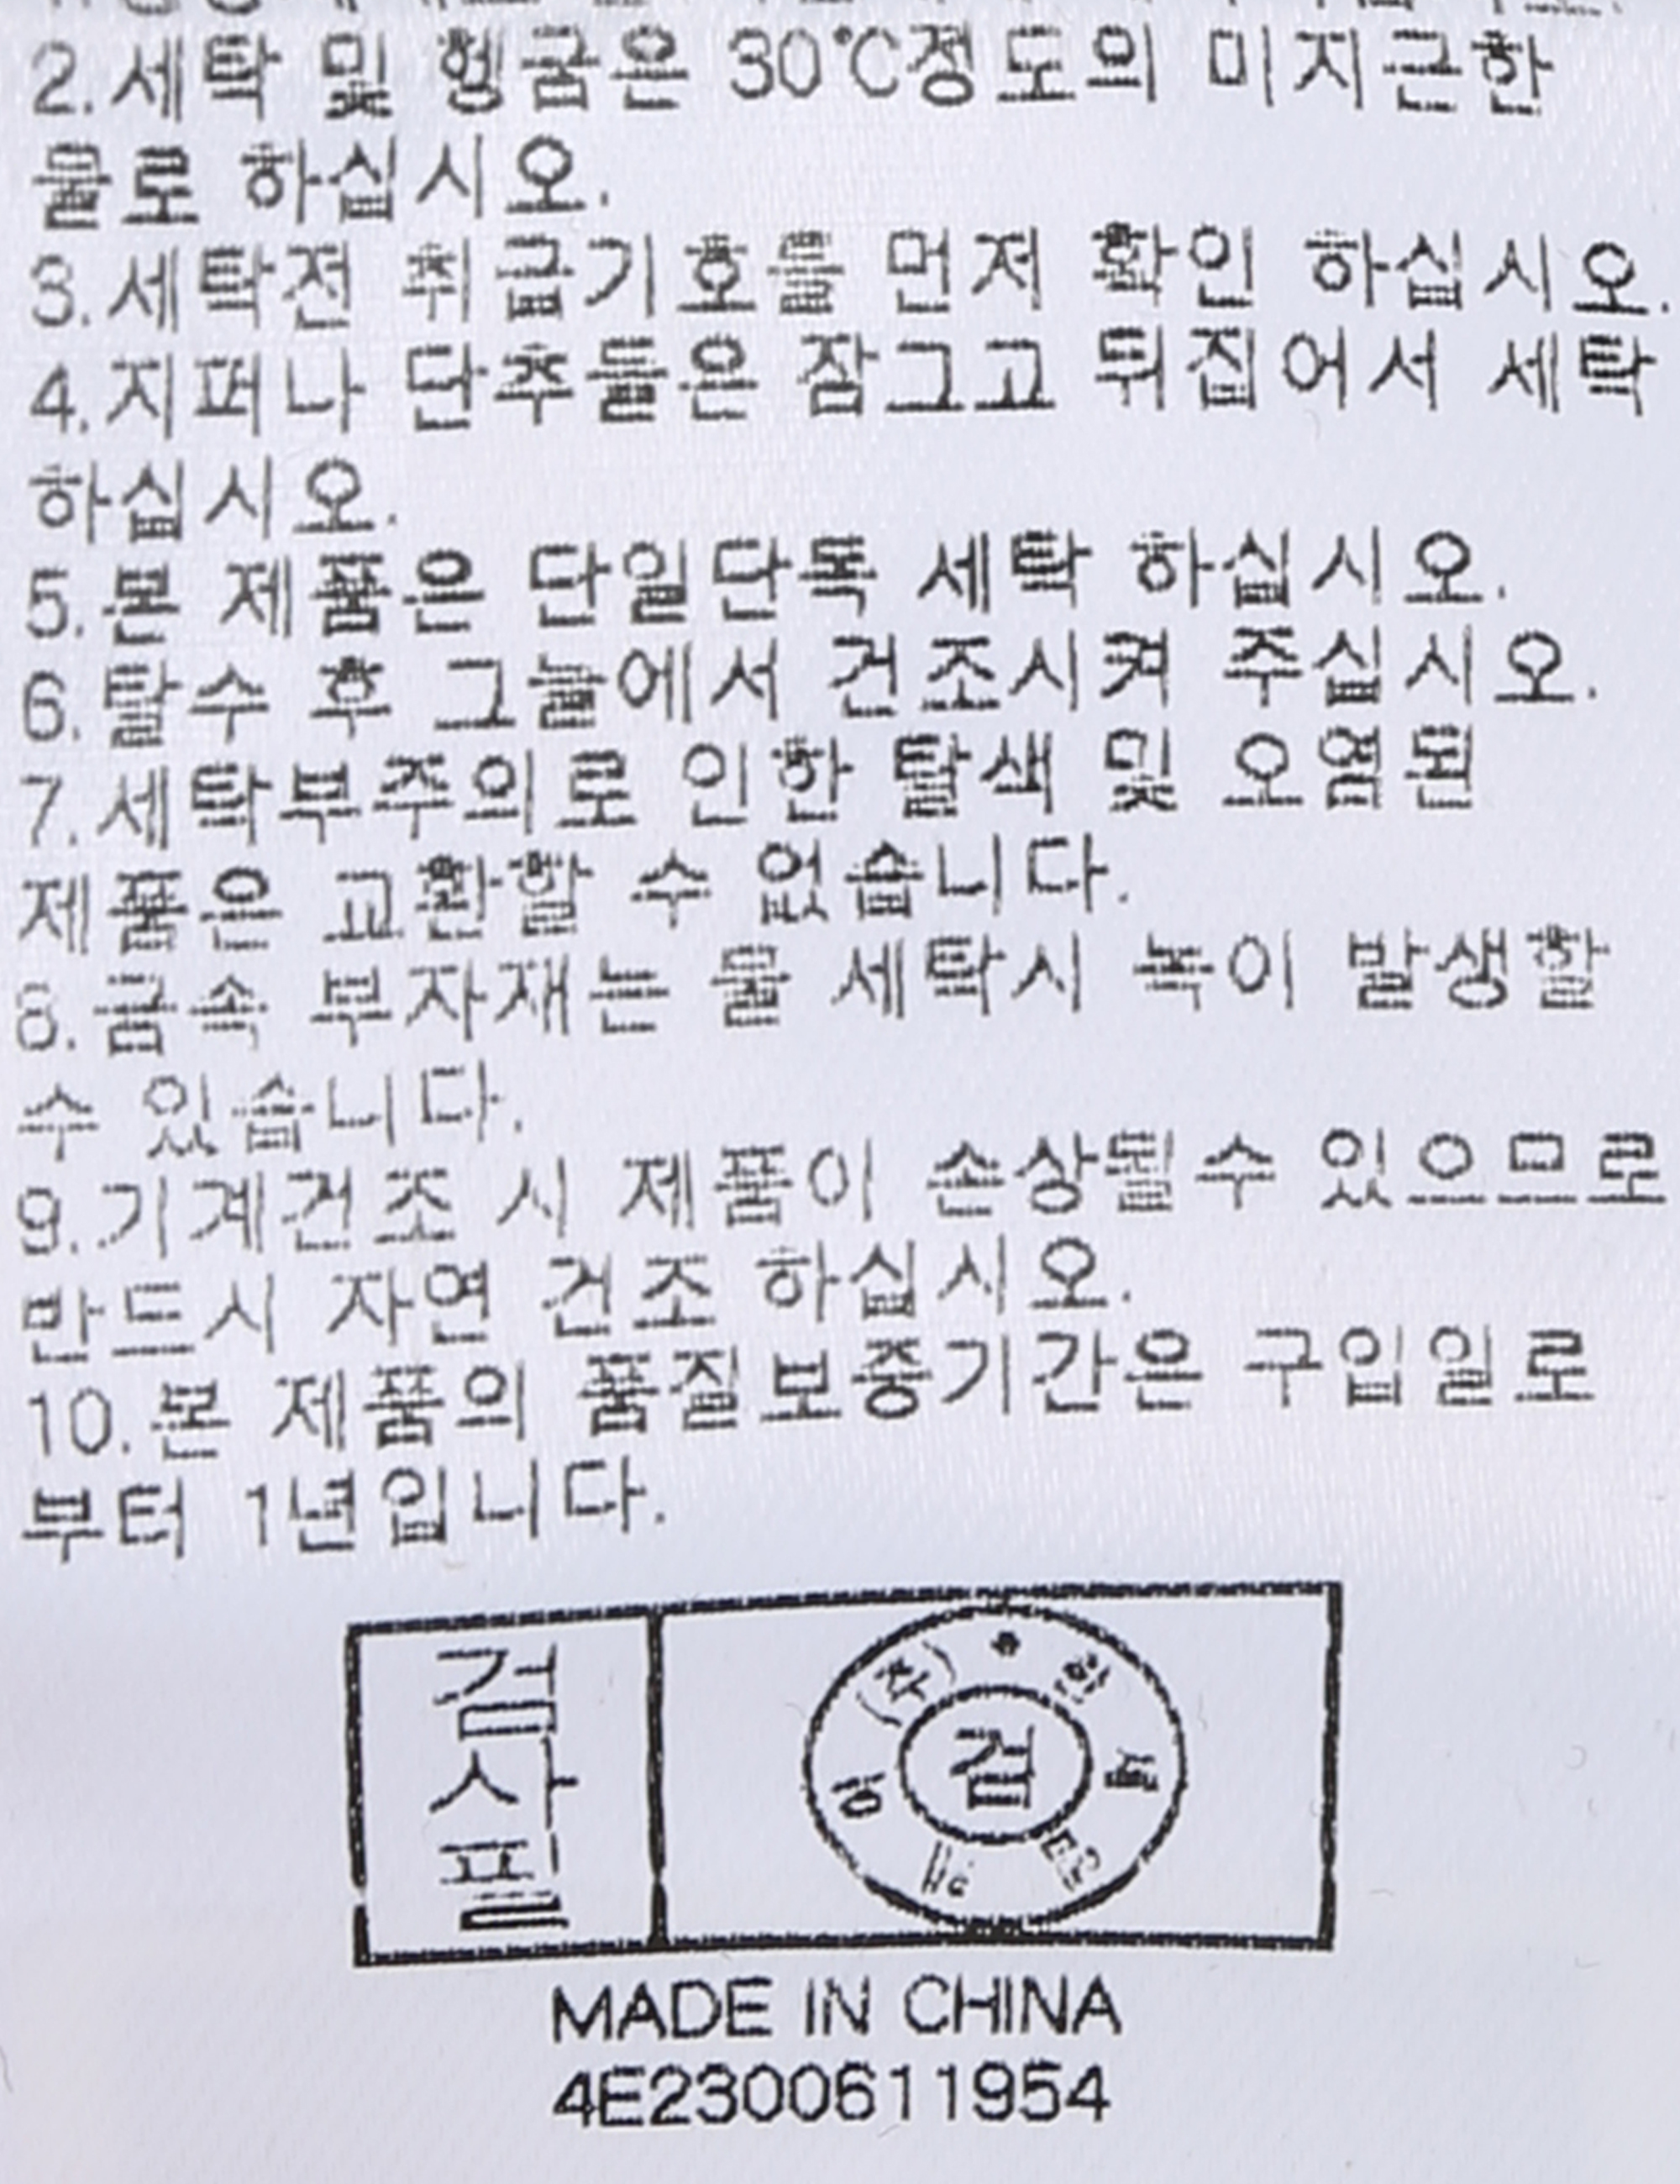 2.세탁 및 헹굼은 30℃정도의 미지근한
물로 하십시오.
3.세탁전 취급기호를 먼저 확인 하십시오.
4.지퍼나 단추들은 잠그고 뒤집어서 세탁
하십시오.
5.본 제품은 단일단독 세탁 하십시오.
6.탈수 후 그늘에서 건조시켜 주십시오.
7.세탁부주의로 인한 탈색 및 오염된
제품은 교환할 수 없습니다.
8.금속 부자재는 물 세탁시 녹이 발생할
수 있습니다.
9.기계건조 시 제품이 손상될수 있으므로
반드시 자연 건조 하십시오.
10.본 제품의 품질보증기간은 구입일로
부터 1년입니다.
검사필
(주)
검
MADE IN CHINA
4E2300611954